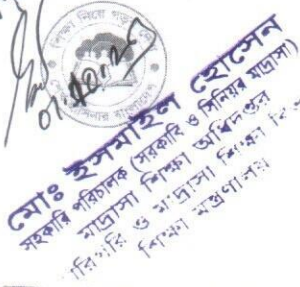 শিক্ষা নিয়ে গড়ব দেশ
মোঃ ইসমাইল হোসেন
সহকারি পরিচালক (সরকারি ও সিনিয়র মাদ্রাসা)
মাদ্রাসা শিক্ষা অধিদপ্তর
কারিগরি ও মাদ্রাসা শিক্ষা
শিক্ষা মন্ত্রণালয়